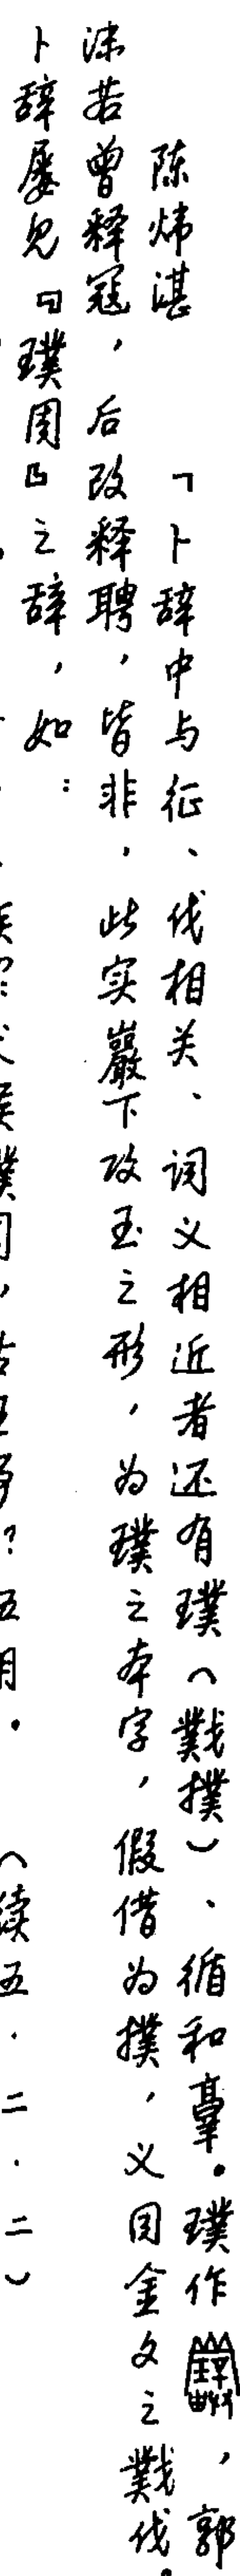 陈炜湛　「卜辞中与征、伐相关、词义相近者还有璞（戮撲）、循和𦎫。璞作，郭
沫若曾释寇，后改释聘，皆非，此实巖下攻玉之形，为璞之本字，假借为撲，义同金文之伐。
卜辞屡见『璞周』之辞，如：
五月。（续五·二·二）